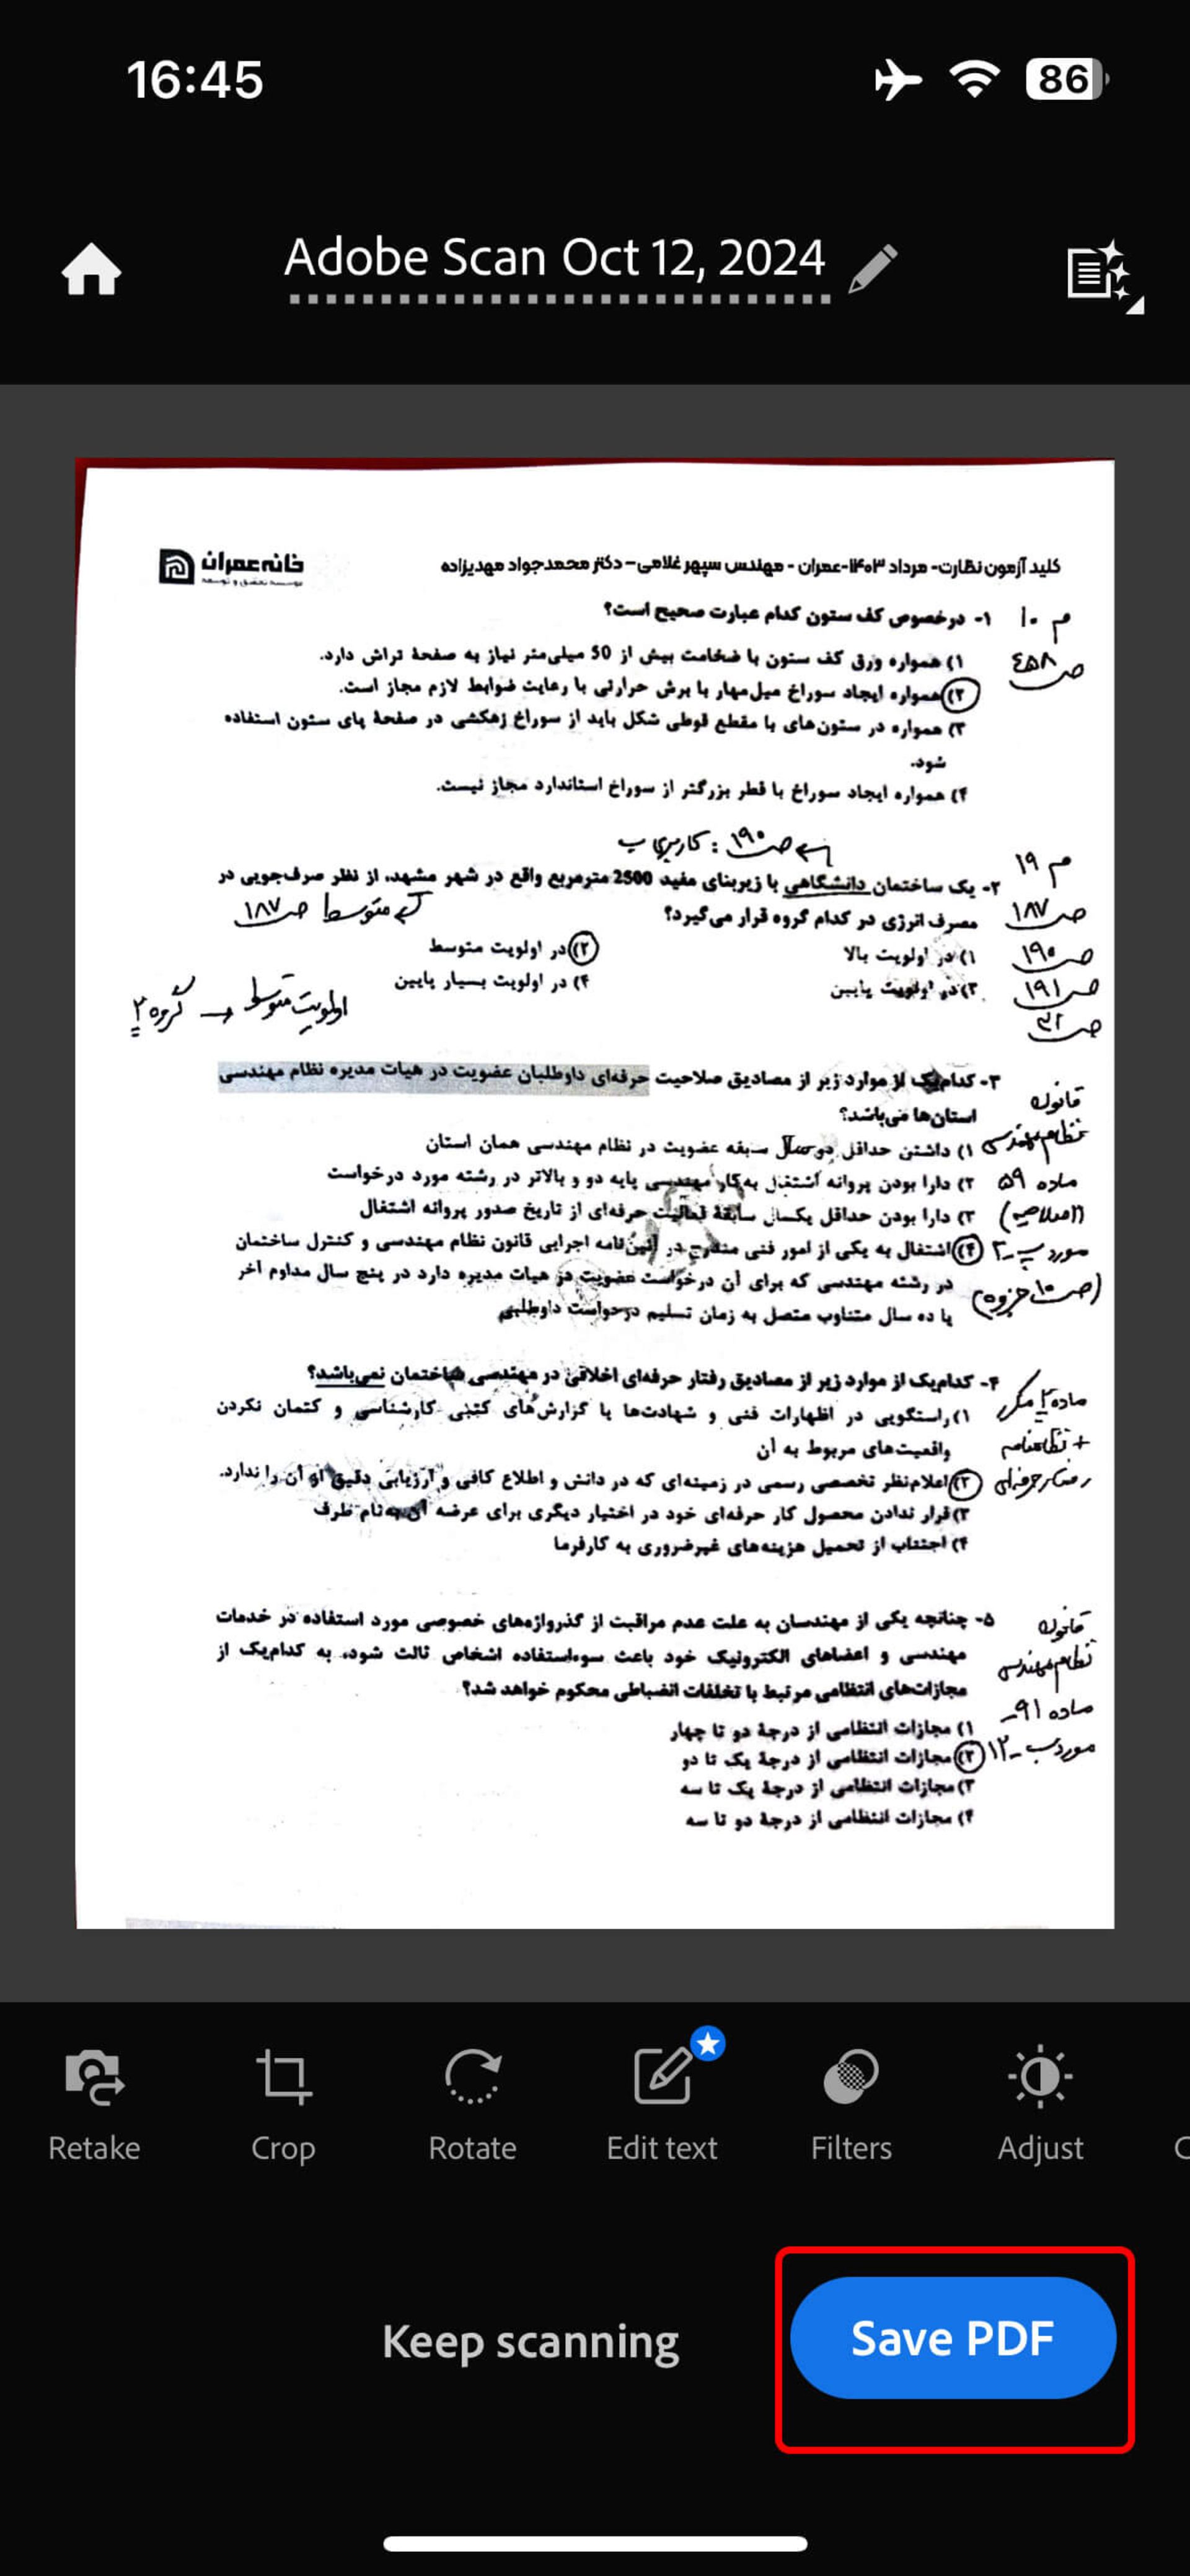 16:45
86
Adobe Scan Oct 12, 2024
خانه عمران
موسسه تحقیق و توسعه
کلید آزمون نظارت- مرداد ۱۴۰۳-عمران - مهندس سپهر غلامی- دکتر محمدجواد مهدیزاده
م ۱۰
ص ۴۵۸
۱- درخصوص کف ستون کدام عبارت صحیح است؟
۱) همواره ورق کف ستون با ضخامت بیش از 50 میلی‌متر نیاز به صفحهٔ تراش دارد.
۲) همواره ایجاد سوراخ میل‌مهار با برش حرارتی با رعایت ضوابط لازم مجاز است.
۳) همواره در ستون‌های با مقطع قوطی شکل باید از سوراخ زهکشی در صفحهٔ پای ستون استفاده
شود.
۴) همواره ایجاد سوراخ با قطر بزرگتر از سوراخ استاندارد مجاز نیست.
ص ۱۹۰ : کاربری ب
م ۱۹
ص ۱۸۷
ص ۱۹۰
ص ۱۹۱
۲- یک ساختمان دانشگاهی با زیربنای مفید 2500 مترمربع واقع در شهر مشهد، از نظر صرف‌جویی در
مصرف انرژی در کدام گروه قرار می‌گیرد؟
متوسط ص ۱۸۷
۱) در اولویت بالا
۲) در اولویت متوسط
۳) در اولویت پایین
۴) در اولویت بسیار پایین
اولویت متوسط → گروه ۲
قانون
نظام مهندسی
ماده ۵۹
(اصلاحیه)
مورد پ-۲
(ص ۱۰ جزوه)
۳- کدام‌یک از موارد زیر از مصادیق صلاحیت حرفه‌ای داوطلبان عضویت در هیات مدیره نظام مهندسی
استان‌ها می‌باشد؟
۱) داشتن حداقل دو سال سابقه عضویت در نظام مهندسی همان استان
۲) دارا بودن پروانه اشتغال به‌کار مهندسی پایه دو و بالاتر در رشته مورد درخواست
۳) دارا بودن حداقل یکسال سابقهٔ فعالیت حرفه‌ای از تاریخ صدور پروانه اشتغال
۴) اشتغال به یکی از امور فنی مندرج در آیین‌نامه اجرایی قانون نظام مهندسی و کنترل ساختمان
در رشته مهندسی که برای آن درخواست عضویت در هیات مدیره دارد در پنج سال مداوم آخر
یا ده سال متناوب متصل به زمان تسلیم درخواست داوطلبی
ماده ۲ مکرر
+ نظامنامه
رفتار حرفه‌ای
۴- کدام‌یک از موارد زیر از مصادیق رفتار حرفه‌ای اخلاقی در مهندسی ساختمان نمی‌باشد؟
۱) راستگویی در اظهارات فنی و شهادت‌ها یا گزارش‌های کتبی کارشناسی و کتمان نکردن
واقعیت‌های مربوط به آن
۲) اعلام‌نظر تخصصی رسمی در زمینه‌ای که در دانش و اطلاع کافی و ارزیابی دقیق از آن را ندارد.
۳) قرار ندادن محصول کار حرفه‌ای خود در اختیار دیگری برای عرضه آن به‌نام طرف
۴) اجتناب از تحمیل هزینه‌های غیرضروری به کارفرما
قانون
نظام مهندسی
ماده ۹۱-
مورد ب-۱۲
۵- چنانچه یکی از مهندسان به علت عدم مراقبت از گذرواژه‌های خصوصی مورد استفاده در خدمات
مهندسی و اعضاهای الکترونیک خود باعث سوءاستفاده اشخاص ثالث شود، به کدام‌یک از
مجازات‌های انتظامی مرتبط با تخلفات انضباطی محکوم خواهد شد؟
۱) مجازات انتظامی از درجهٔ دو تا چهار
۲) مجازات انتظامی از درجهٔ یک تا دو
۳) مجازات انتظامی از درجهٔ یک تا سه
۴) مجازات انتظامی از درجهٔ دو تا سه
Retake
Crop
Rotate
Edit text
Filters
Adjust
Keep scanning
Save PDF